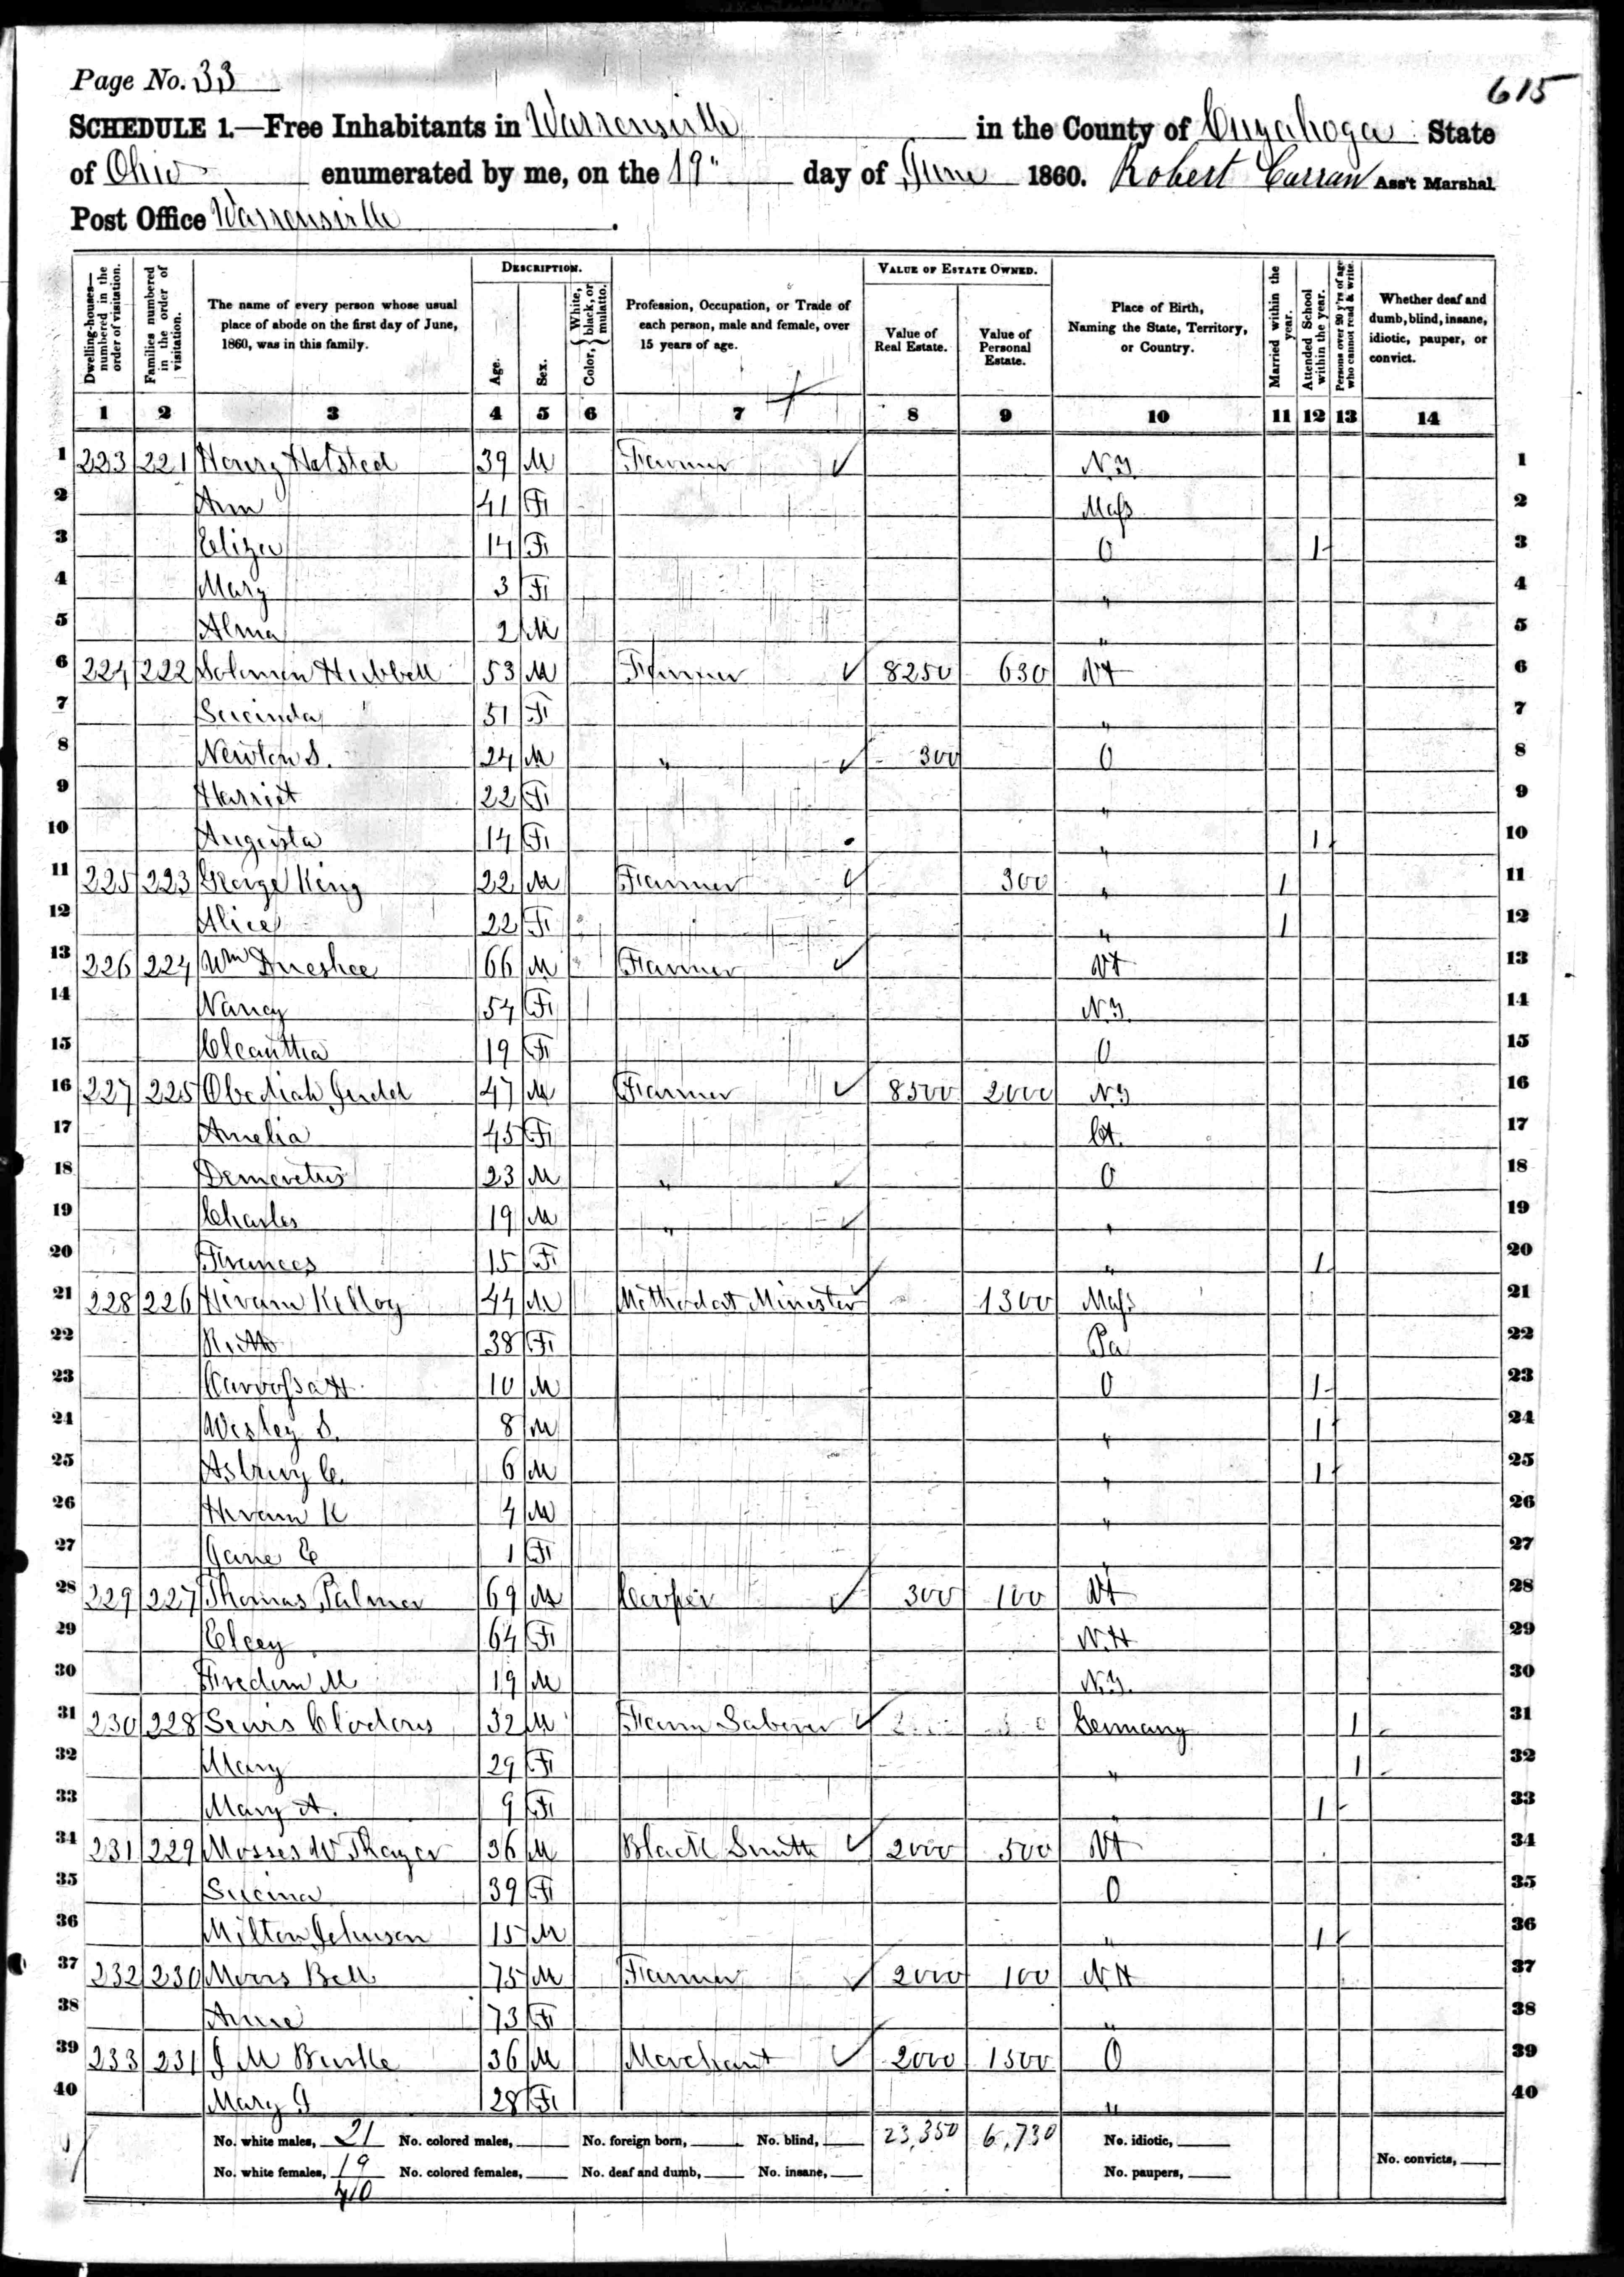 Page No. 33
615
SCHEDULE 1.—Free Inhabitants in Warrensville in the County of Cuyahoga State
of Ohio enumerated by me, on the 19" day of June 1860. Robert Curran Ass't Marshal
Post Office Warrensville.
Dwelling-houses—numbered in the order of visitation.
Families numbered in the order of visitation.
The name of every person whose usual place of abode on the first day of June, 1860, was in this family.
DESCRIPTION.
Age.
Sex.
Color, { White, black, or mulatto.
Profession, Occupation, or Trade of each person, male and female, over 15 years of age.
VALUE OF ESTATE OWNED.
Value of Real Estate.
Value of Personal Estate.
Place of Birth, Naming the State, Territory, or Country.
Married within the year.
Attended School within the year.
Persons over 20 y'rs of age who cannot read & write.
Whether deaf and dumb, blind, insane, idiotic, pauper, or convict.
1 2 3 4 5 6 7 8 9 10 11 12 13 14
1 223 221 Henry Halsted 39 M Farmer ✓ N.Y. 1
2 Ann 41 F Mass 2
3 Eliza 14 F O 1 3
4 Mary 3 F " 4
5 Alma 2 M " 5
6 224 222 Solomon Hubbell 53 M Farmer ✓ 8250 630 Vt 6
7 Lucinda 51 F " 7
8 Newton S. 24 M " ✓ 300 O 8
9 Harriet 22 F " 9
10 Augusta 14 F " 1 10
11 225 223 George King 22 M Farmer ✓ 300 " 1 11
12 Alice 22 F " 1 12
13 226 224 Wm 66 M Farmer ✓ Vt 13
14 Nancy 54 F N.Y. 14
15 Cleantha 19 F O 15
16 227 225 Obediah Judd 47 M Farmer ✓ 8500 2000 N.Y 16
17 Amelia 45 F Ct. 17
18 Demevetus 23 M " ✓ O 18
19 Charles 19 M " ✓ " 19
20 Frances 15 F " 1 20
21 228 226 Hiram Kellog 44 M Methodist Minister ✓ 1300 Mass 21
22 Ruth 38 F Pa 22
23 Carvosso H. 10 M O 1 23
24 Wesley S. 8 M " 1 24
25 Asbury C. 6 M " 1 25
26 Hiram K 4 M " 26
27 Jane E 1 F " 27
28 229 227 Thomas Palmer 69 M Cooper ✓ 300 100 Vt 28
29 Elcey 64 F N.H 29
30 Fredom M 19 M N.Y. 30
31 230 228 Lewis Clodous 32 M Farm Laborer ✓ Germany 1 31
32 Mary 29 F " 1 32
33 Mary A. 9 F " 1 33
34 231 229 Mosses W Thayer 36 M Black Smith ✓ 2000 500 Vt 34
35 Lucina 39 F O 35
36 Milton Johnson 15 M " 1 36
37 232 230 Morris Bell 75 M Farmer ✓ 2000 100 N H 37
38 Anne 73 F " 38
39 233 231 J M Burke 36 M Merchant ✓ 2000 1500 O 39
40 Mary J 28 F " 40
No. white males, 21 No. colored males, No. foreign born, No. blind, 23,350 6,730 No. idiotic,
No. white females, 19 No. colored females, No. deaf and dumb, No. insane, No. paupers, No. convicts,
40